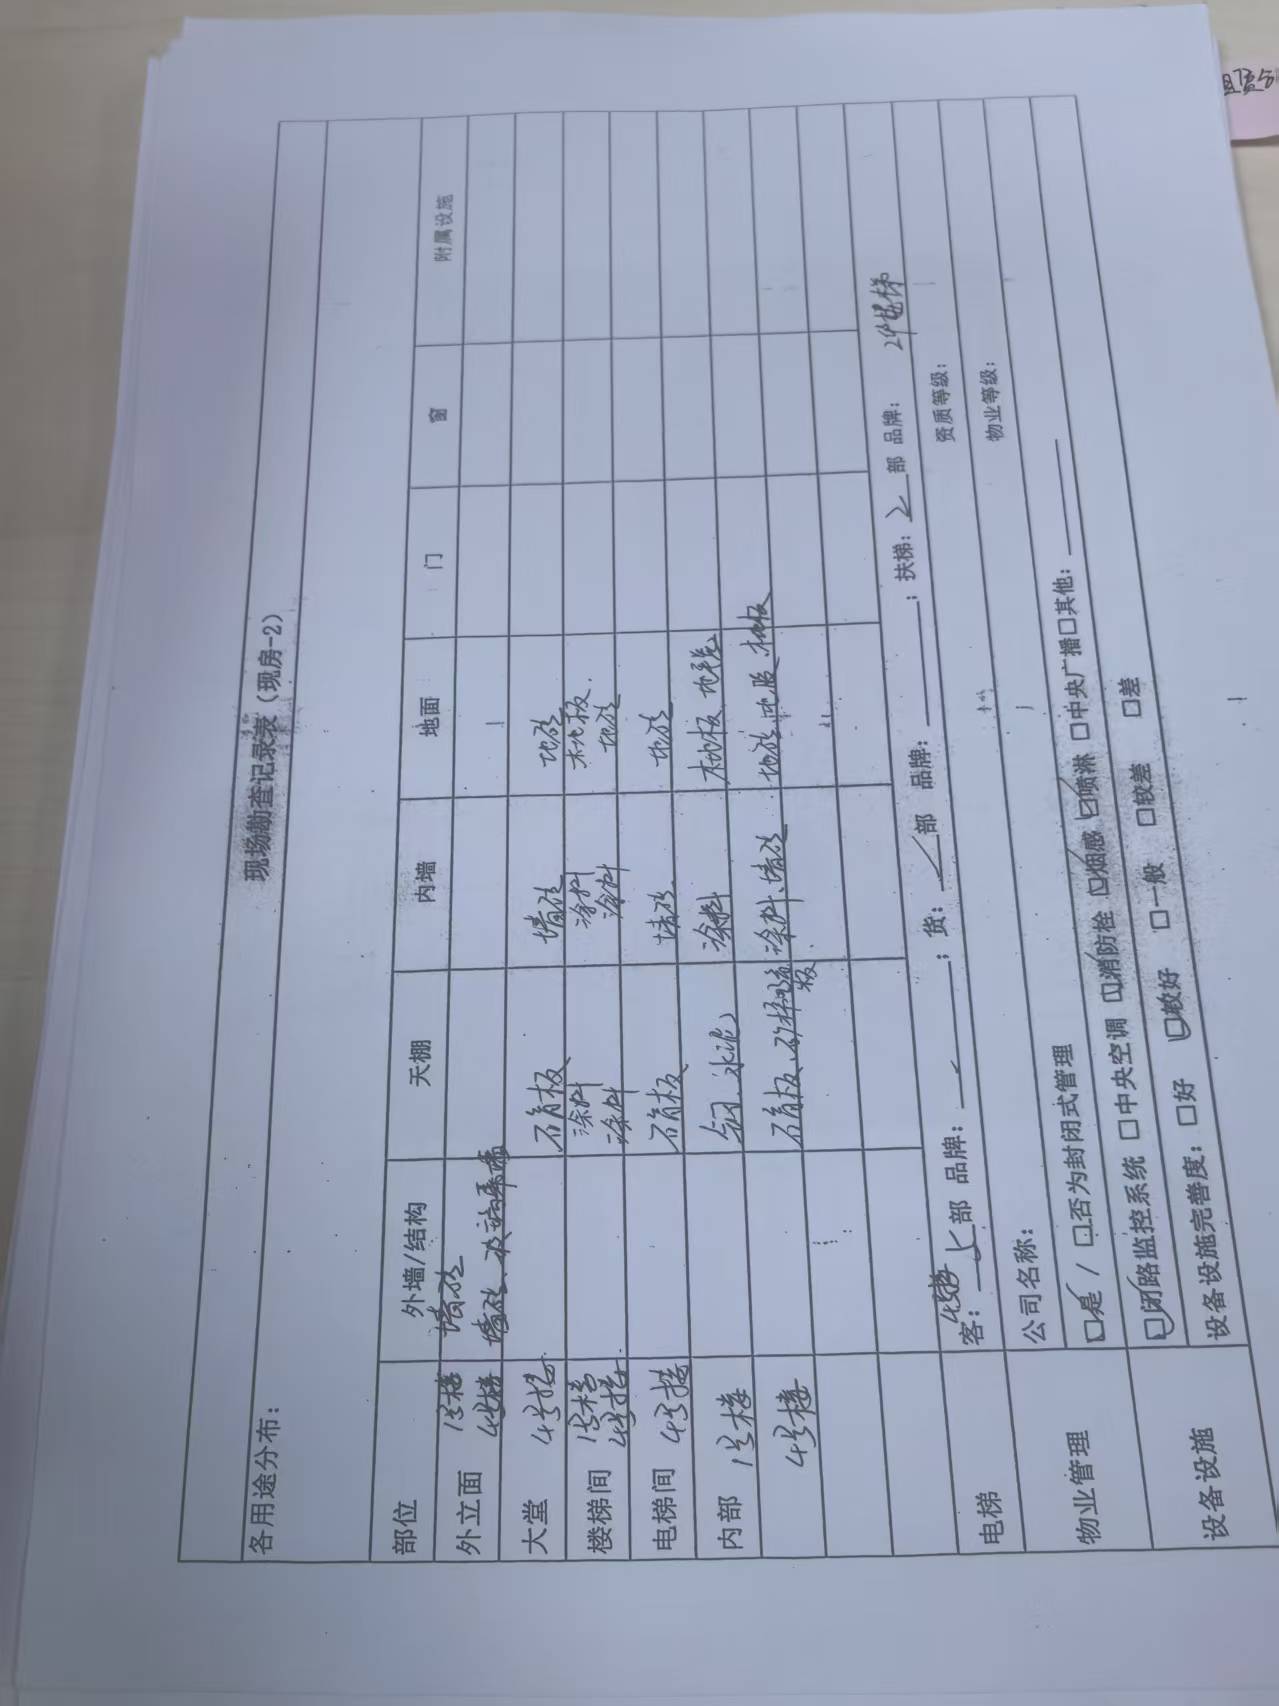 现场勘查记录表（现房-2）
各用途分布：
部位 外墙/结构 天棚 内墙 地面 门 窗 附属设施
外立面 1号楼 墙砖
4号楼 墙砖、玻璃幕墙
大堂 4号楼 石膏板 墙砖 地砖
楼梯间 1号楼 涂料 涂料 木地板
4号楼 涂料 涂料 地砖
电梯间 4号楼 石膏板 墙砖 地砖
内部 1号楼 水泥 涂料 木地板 地毯
4号楼 石膏板、矿棉板 涂料、墙砖 地砖、地胶、木地板
电梯 4号楼
客： 部 品牌： ；货： 部 品牌： ；扶梯：2部 品牌： 2号楼梯
物业管理 公司名称： 资质等级：
☑是 / □否为封闭式管理 物业等级：
设备设施 ☑闭路监控系统 □中央空调 ☑消防栓 ☑烟感 ☑喷淋 □中央广播□其他：
设备设施完善度：□好 ☑较好 □一般 □较差 □差